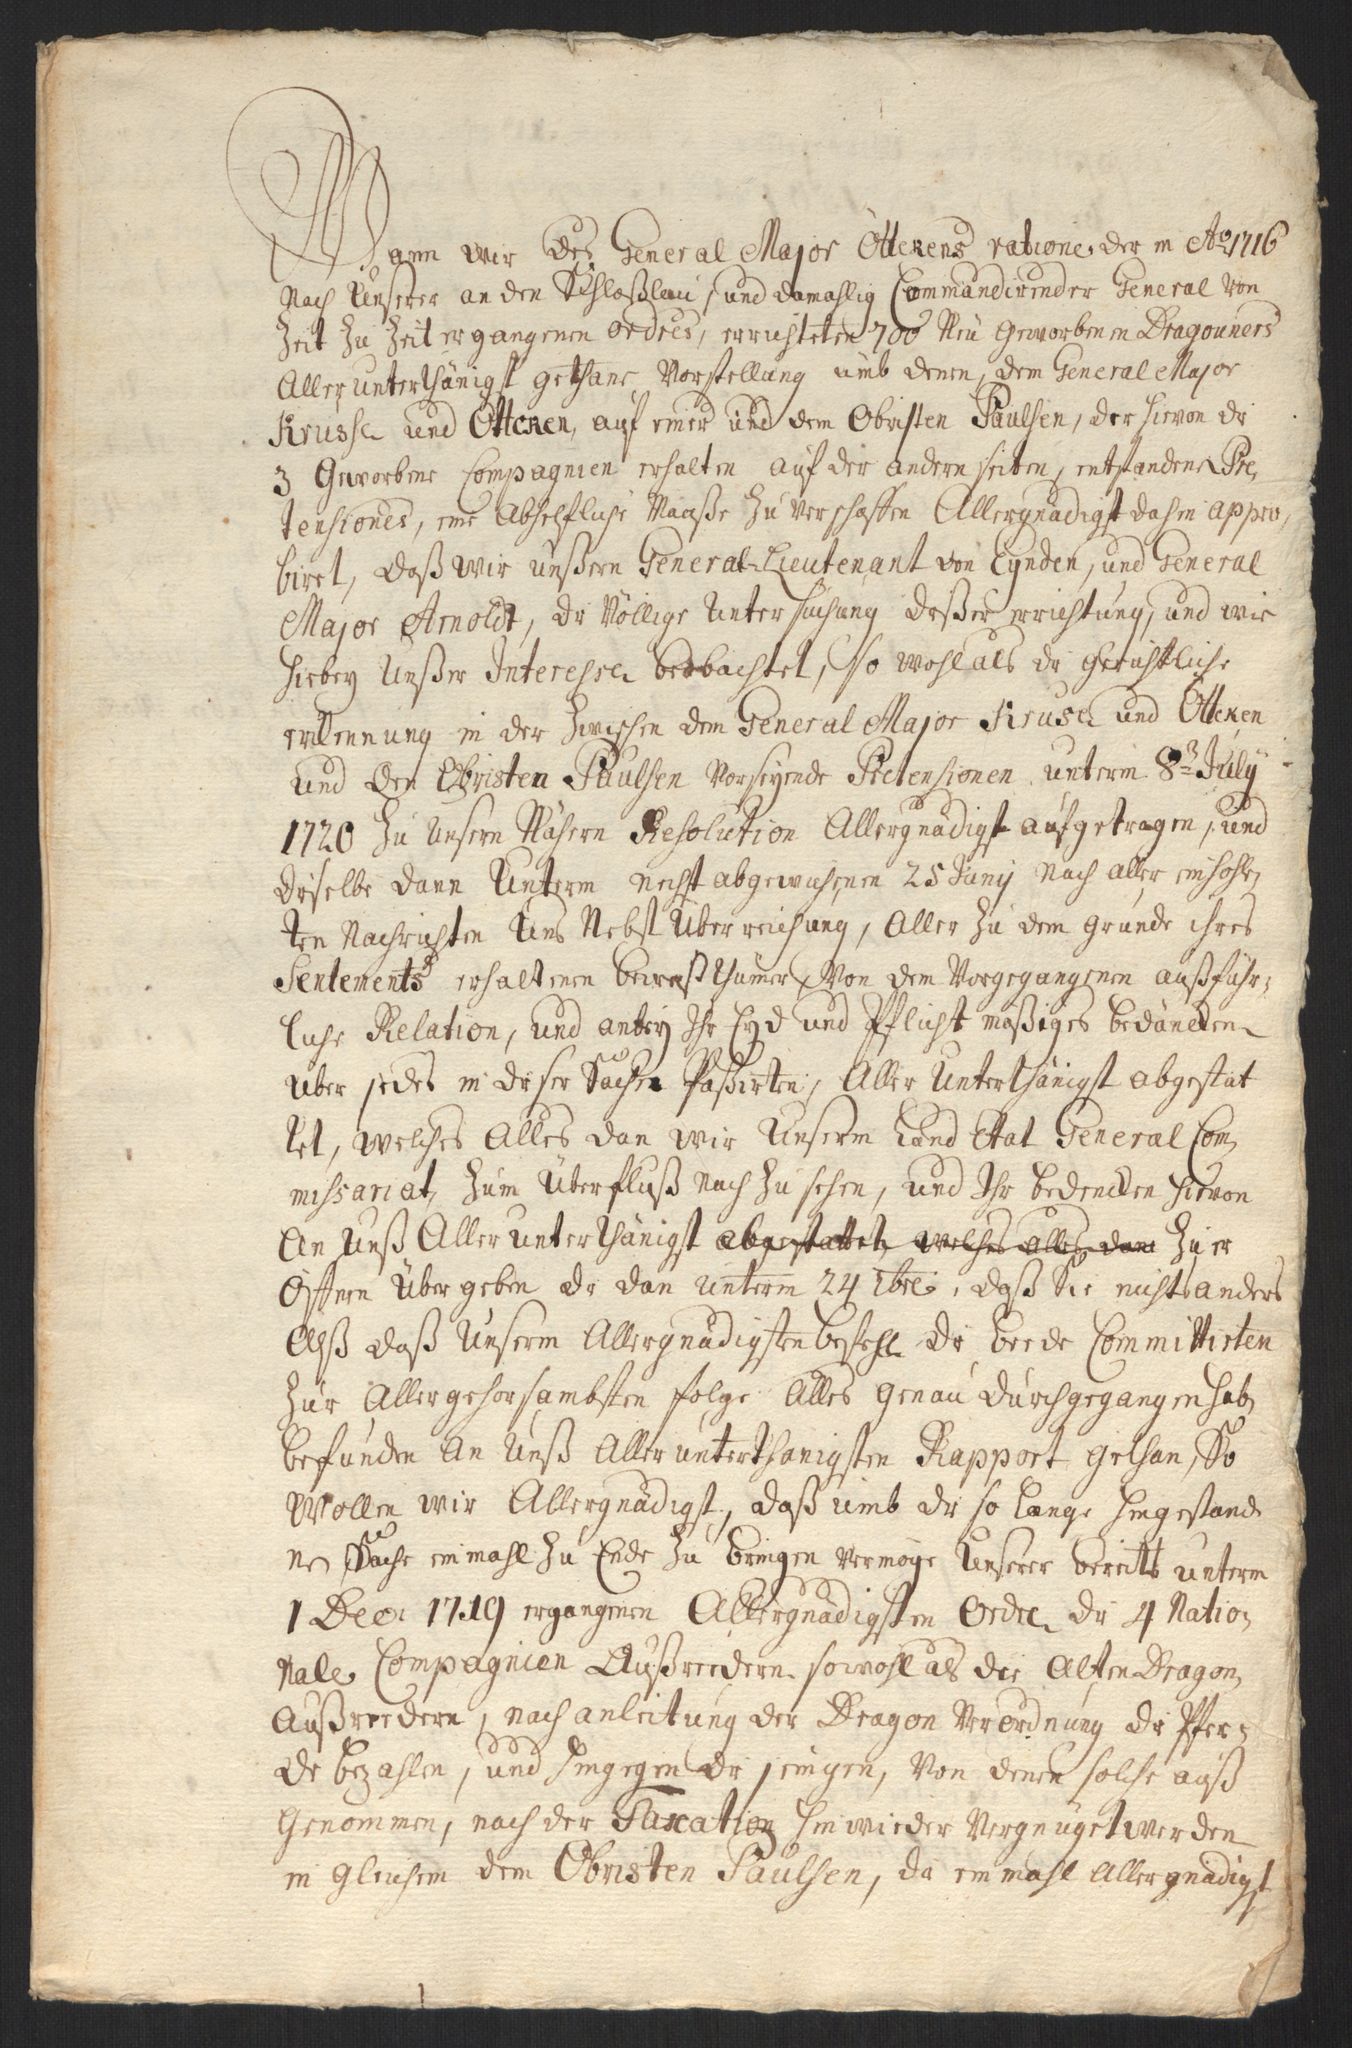 Wann wir des General Major Öttkens ratione der in Ao 1716
Nach Unserer an den Schloßlau, und damahlig Commandirender General von
Zeit zu Zeit ergangenen ordres, errichteten 700 Neu Geworbenen Dragouners
Allerunterthänigst gethane Vorstellung umb denen, dem General Major
Kruse und Öttken, auf einer und dem Obristen Paulsen, der hievon die
3 Geworbene Compagnien erhalten auf der andern seiten, entstandene Pre,
tensiones, eine Abhelfliche Maaße zu verschaffen Allergnädigst dahin appro,
biret, daß wir unßern General-Lieutenant von Eynden, und General
Major Arnoldt, die Völlige Untersuchung deßer errichtung, und wie
hierbey Unßer Interesse beobachtet, so wohl als die Gerichtliche
erkennung in der Zwischen dem General Major Kruse und Öttken
und den Obristen Paulsen vorseyende Pretensionen unterm 8ten July
1720 zu Unsern Nähern Resolution Allergnädigst aufgetragen, und
dieselbe dann Unterm nechst abgewichenen 25 Junij Nach aller einhohl,
ten Nachrichten Uns Nebst Überreichung, Aller zu dem grunde ihres
Sentements erhaltenen beweißthümer, Von dem Vorgegangenen außführ,
liche Relation, und anbey Ihr Eyd und Pflicht mäßiges bedäncken
über jedes in dieser Sache Paßirten, Aller Unterthänigst abgestat
tet, welches Alles dan wir Unserm Land Etat General Com,
missariat, zum Überfluß nach zu sehen, und Ihr bedencken hievon
An Unß Allerunterthänigst abgestattet, welches alles dan zu er
öffnen Übergeben die dan unterm 24 7bre, daß Sie nichts anders
Alß daß Unserm Allergnädigsten befehl die beede Committirten
zur Allergehorsambsten folge Alles Genau durchgegangen hab,
befunden An Unß Allerunterthänigsten Rapport gethan, So
Wollen wir Allergnädigst, daß umb die so lange hingestande
ne Sache einmahl zu Ende zu bringen vermöge Unserer bereits unterm
1 Dec: 1719 ergangenen Allergnädigsten Ordre die 4 Natio,
nale Compagnien Außreedern sowohl als die Alten Dragon,
Außreedern, nach anleitung der Dragon Verordnung die Pfer,
de bezahlen, und hingegen die jenigen, Von denen solche auß
Genommen, nach der Taxation hinwieder Vergnüget werden
in gleichem dem Obristen Paulsen, da einmahl Allergnädigst